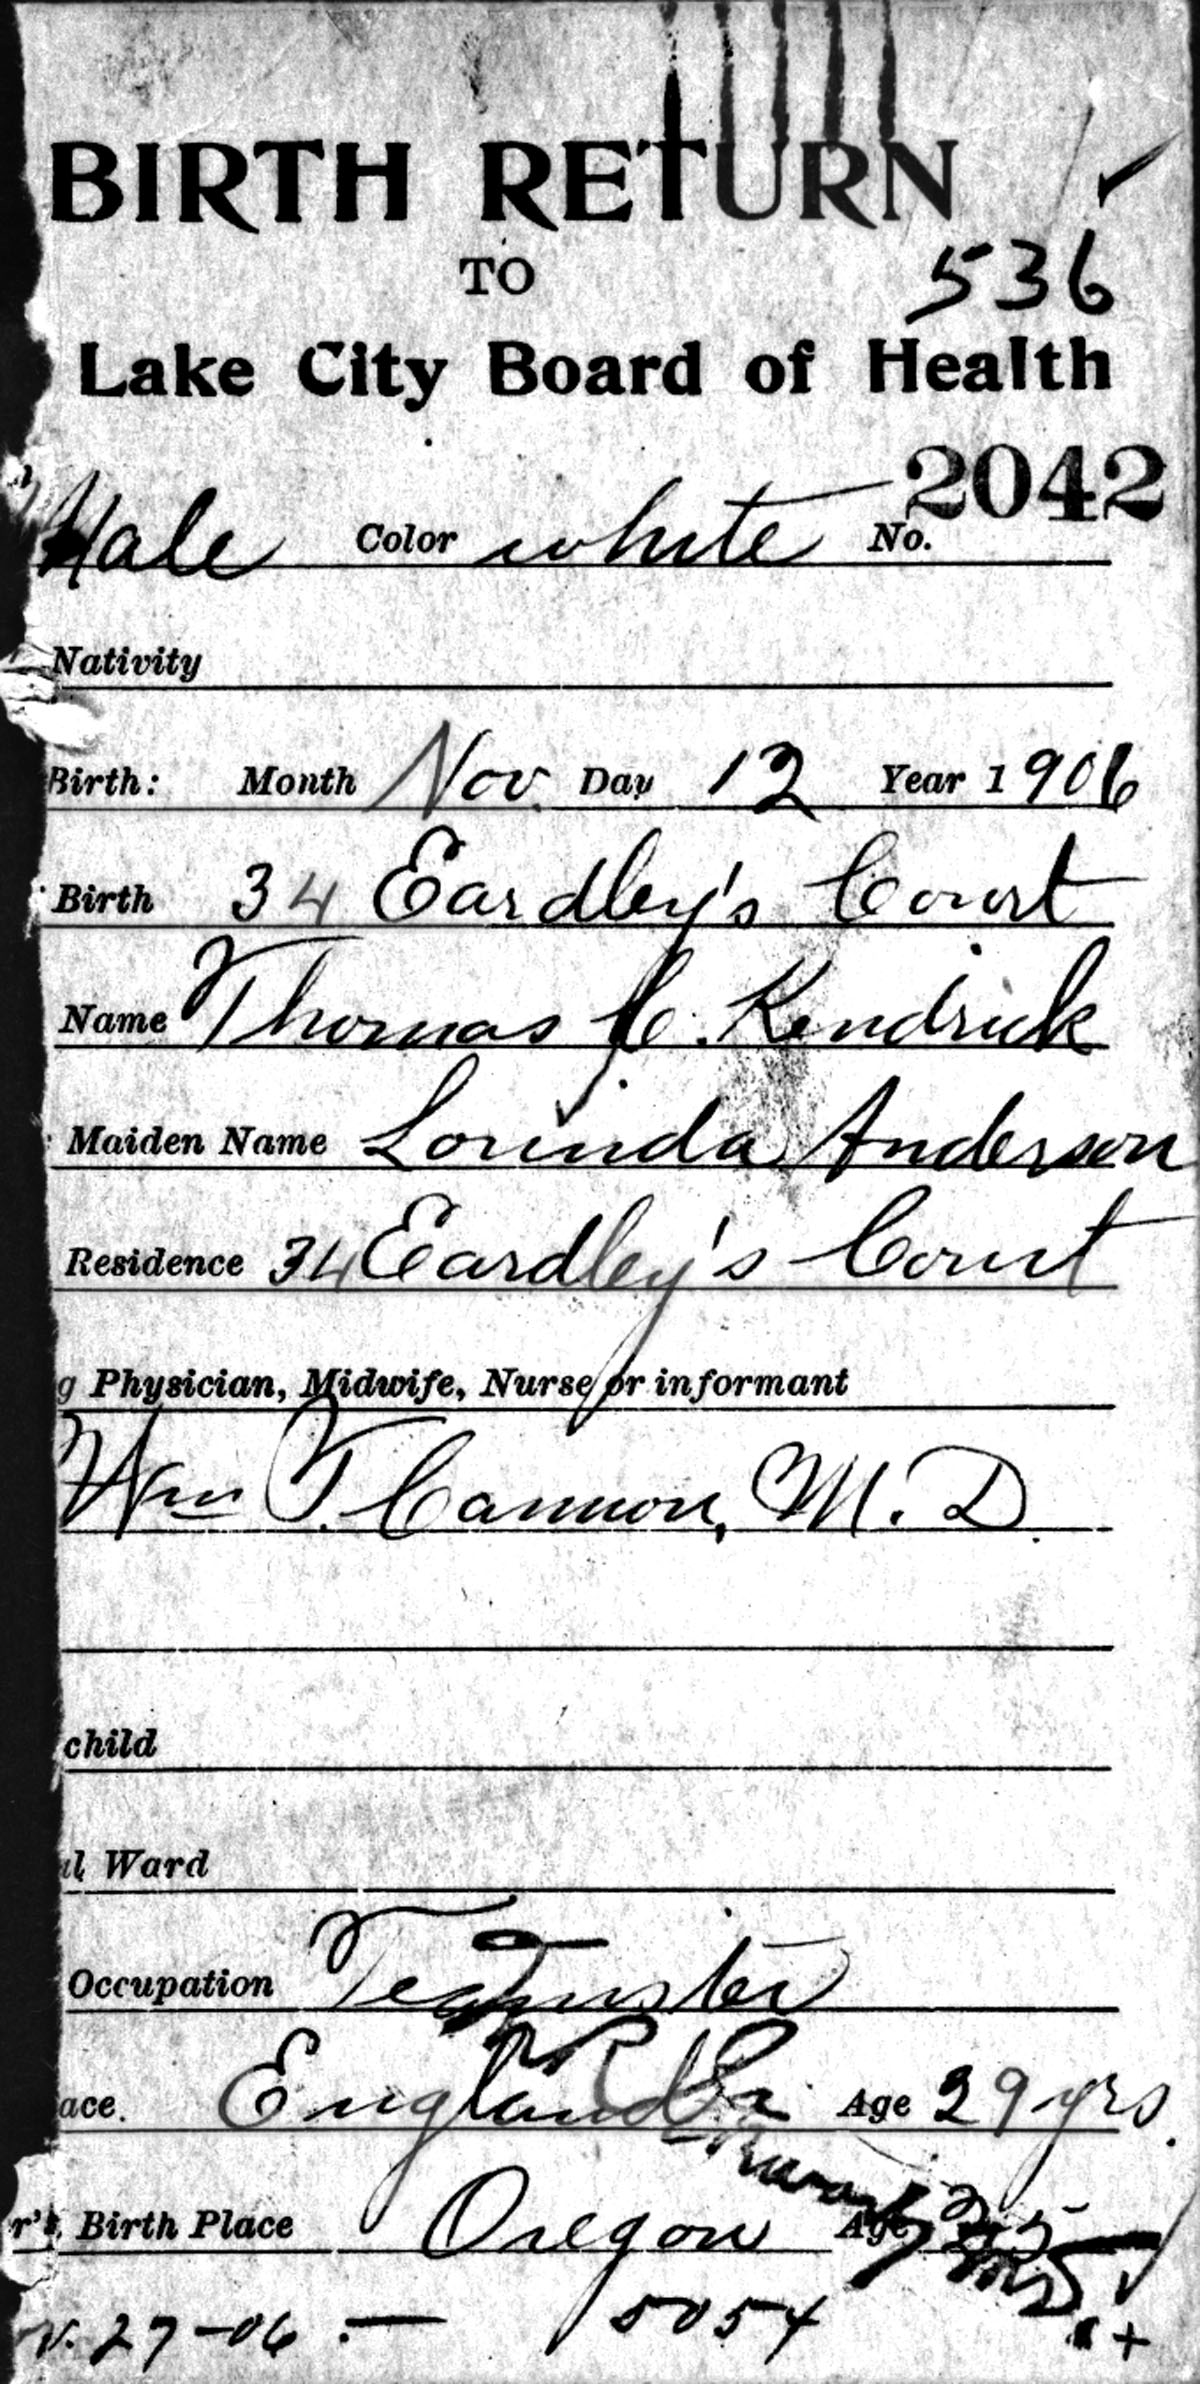 BIRTH RETURN
TO
536
Lake City Board of Health
2042
Male Color white No.
Nativity
Birth: Month Nov. Day 12 Year 1906
Birth 34 Eardley's Court
Name Thomas C. Kendrick
Maiden Name Lorinda Anderson
Residence 34 Eardley's Court
g Physician, Midwife, Nurse or informant
Wm T. Cannon, M. D.
child
al Ward
Occupation Teamster
ace. England Age 29 yrs.
r's Birth Place Oregon Age 25
v. 27-06. — 5054